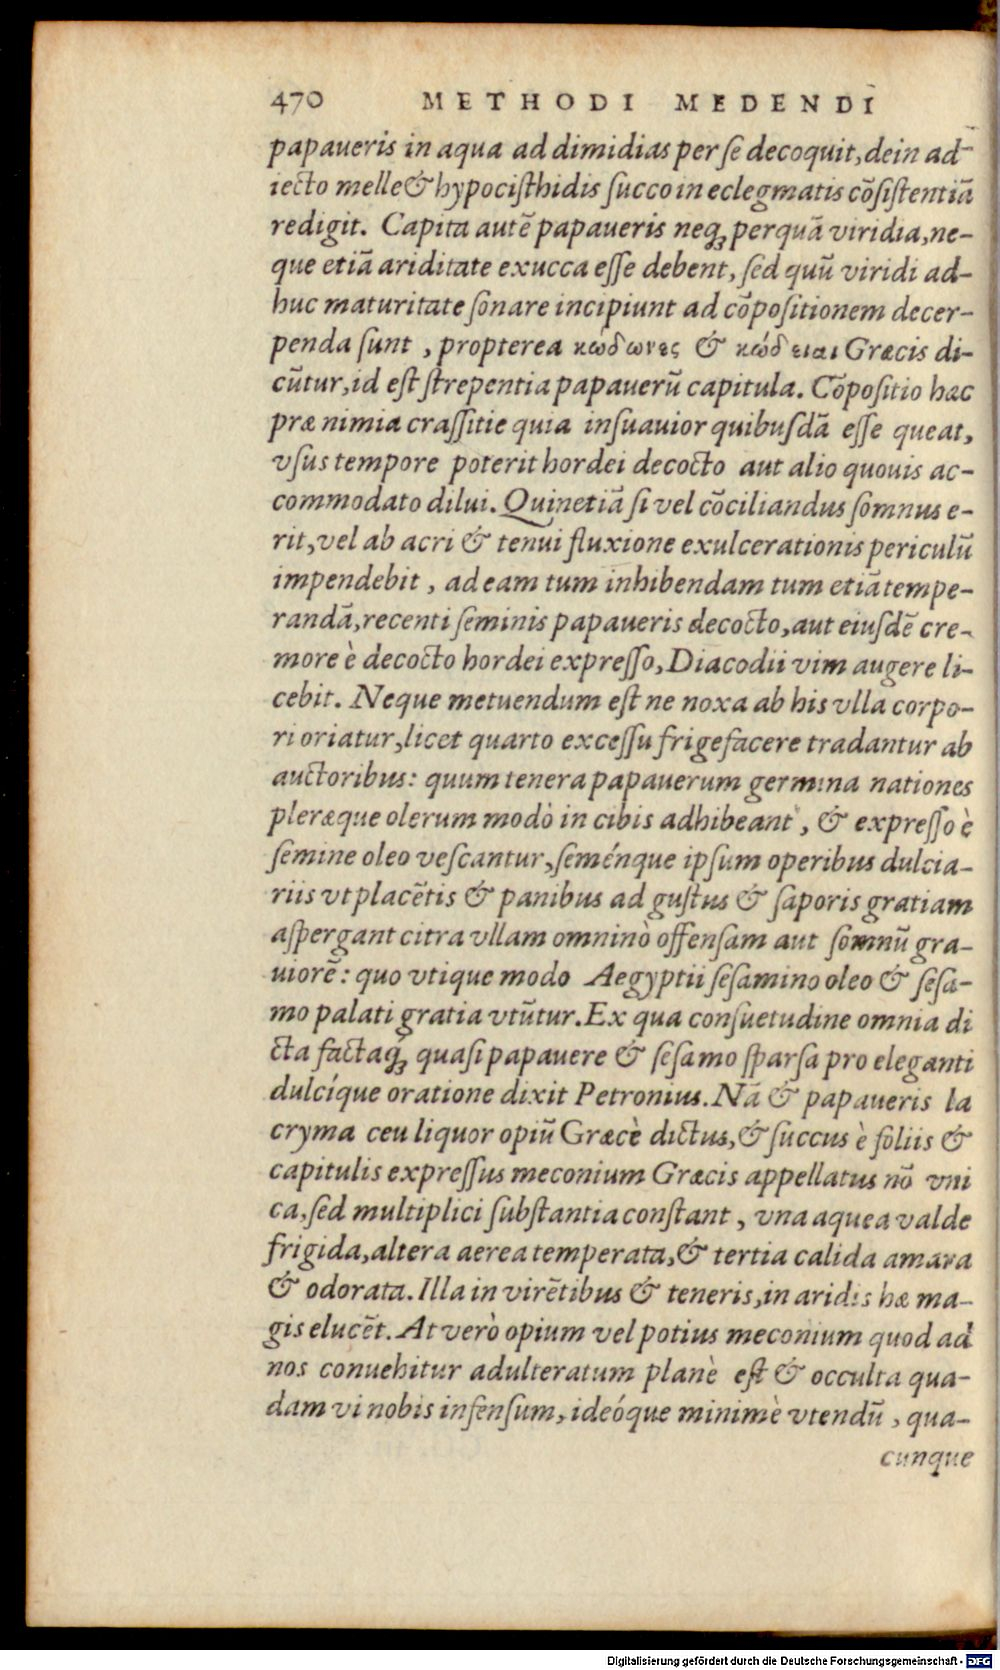 470 METHODI MEDENDI
papaueris in aqua ad dimidias per se decoquit, dein ad-
iecto melle & hypocisthidis succo in eclegmatis cõsistentiã
redigit. Capita autẽ papaueris neq; perquã viridia, ne-
que etiã ariditate exucca esse debent, sed quũ viridi ad-
huc maturitate sonare incipiunt ad cõpositionem decer-
penda sunt, propterea κώδωνες & κώδειαι Græcis di-
cũtur, id est strepentia papauerũ capitula. Cõpositio hæc
præ nimia crassitie quia insuauior quibusdã esse queat,
vsus tempore poterit hordei decocto aut alio quouis ac-
commodato dilui. Quinetiã si vel cõciliandus somnus e-
rit, vel ab acri & tenui fluxione exulcerationis periculũ
impendebit, ad eam tum inhibendam tum etiã tempe-
randã, recenti seminis papaueris decocto, aut eiusdẽ cre-
more è decocto hordei expresso, Diacodii vim augere li-
cebit. Neque metuendum est ne noxa ab his vlla corpo-
ri oriatur, licet quarto excessu frigefacere tradantur ab
auctoribus: quum tenera papauerum germina nationes
pleræque olerum modò in cibis adhibeant, & expresso è
semine oleo vescantur, seménque ipsum operibus dulcia-
riis vt placẽtis & panibus ad gustus & saporis gratiam
aspergant citra vllam omninò offensam aut somnũ gra-
uiorẽ: quo vtique modo Aegyptii sesamino oleo & sesa-
mo palati gratia vtũtur. Ex qua consuetudine omnia di
cta factaq́; quasi papauere & sesamo sparsa pro eleganti
dulcíque oratione dixit Petronius. Nã & papaueris la
cryma ceu liquor opiũ Græcè dictus, & succus è foliis &
capitulis expressus meconium Græcis appellatus nõ vni
ca, sed multiplici substantia constant, vna aquea valde
frigida, altera aerea temperata, & tertia calida amara
& odorata. Illa in virẽtibus & teneris, in aridis hæ ma-
gis elucẽt. At verò opium vel potius meconium quod ad
nos conuehitur adulteratum planè est & occulta qua-
dam vi nobis infensum, ideóque minimè vtendũ, qua-
cunque
Digitalisierung gefördert durch die Deutsche Forschungsgemeinschaft - DFG